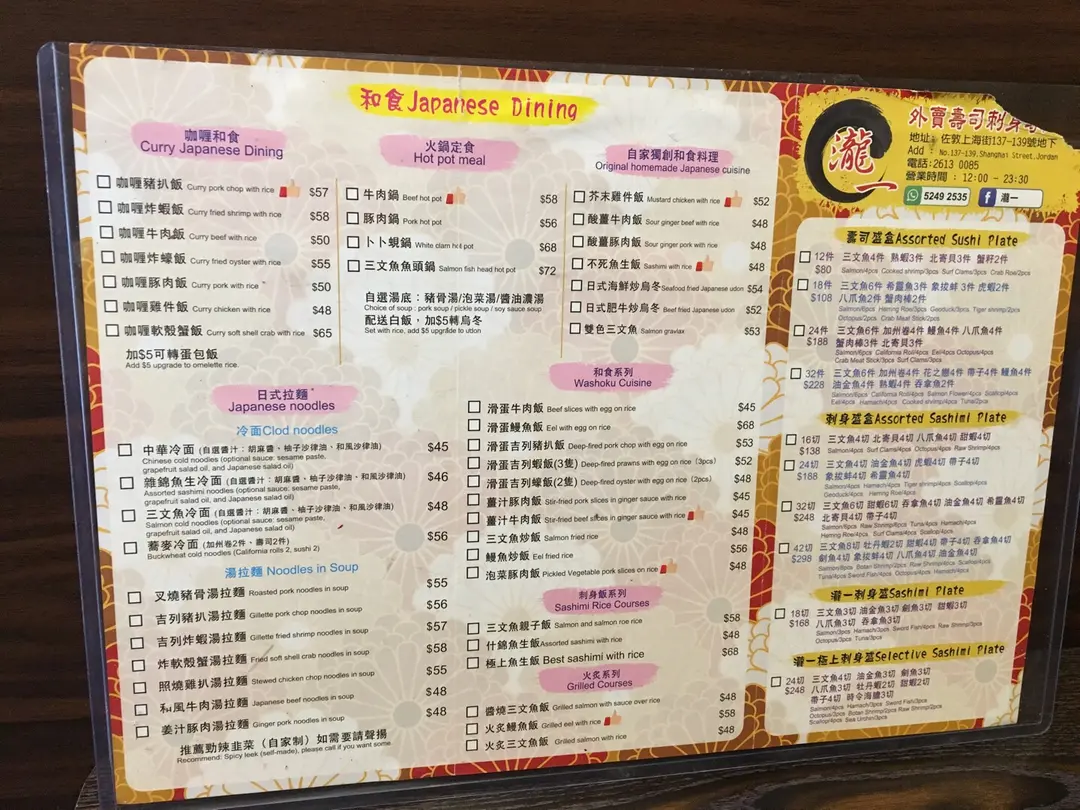 和食Japanese Dining
咖喱和食
Curry Japanese Dining
咖喱豬扒飯 Curry pork chop with rice $57
咖喱炸蝦飯 Curry fried shrimp with rice $58
咖喱牛肉飯 Curry beef with rice $50
咖喱炸蠔飯 Curry fried oyster with rice $55
咖喱豚肉飯 Curry pork with rice $50
咖喱雞件飯 Curry chicken with rice $48
咖喱軟殼蟹飯 Curry soft shell crab with rice $65
加$5可轉蛋包飯
Add $5 upgrade to omelette rice.
火鍋定食
Hot pot meal
牛肉鍋 Beef hot pot $58
豚肉鍋 Pork hot pot $56
卜卜蜆鍋 White clam hot pot $68
三文魚魚頭鍋 Salmon fish head hot pot $72
自選湯底：豬骨湯/泡菜湯/醬油濃湯
Choice of soup : pork soup / pickle soup / soy sauce soup
配送白飯，加$5轉烏冬
Set with rice, add $5 upgrade to udon
自家獨創和食料理
Original homemade Japanese cuisine
芥末雞件飯 Mustard chicken with rice $52
酸薑牛肉飯 Sour ginger beef with rice $48
酸薑豚肉飯 Sour ginger pork with rice $48
不死魚生飯 Sashimi with rice $48
日式海鮮炒烏冬 Seafood fried Japanese udon $54
日式肥牛炒烏冬 Beef fried Japanese udon $52
雙色三文魚 Salmon gravlax $53
日式拉麵
Japanese noodles
冷面Clod noodles
中華冷面 (自選醬汁：胡麻醬、柚子沙律油、和風沙律油) $45
Chinese cold noodles (optional sauce: sesame paste,
grapefruit salad oil, and Japanese salad oil)
雜錦魚生冷面 (自選醬汁：胡麻醬、柚子沙律油、和風沙律油) $46
Assorted sashimi noodles (optional sauce: sesame paste,
grapefruit salad oil, and Japanese salad oil)
三文魚冷面 (自選醬汁：胡麻醬、柚子沙律油、和風沙律油) $48
Salmon cold noodles (optional sauce: sesame paste,
grapefruit salad oil, and Japanese salad oil)
蕎麥冷面 (加州卷2件、壽司2件) $56
Buckwheat cold noodles (California rolls 2, sushi 2)
湯拉麵 Noodles in Soup
叉燒豬骨湯拉麵 Roasted pork noodles in soup $55
吉列豬扒湯拉麵 Gillette pork chop noodles in soup $56
吉列炸蝦湯拉麵 Gillette fried shrimp noodles in soup $57
炸軟殼蟹湯拉麵 Fried soft shell crab noodles in soup $58
照燒雞扒湯拉麵 Stewed chicken chop noodles in soup $55
和風牛肉湯拉麵 Japanese beef noodles in soup $48
姜汁豚肉湯拉麵 Ginger pork noodles in soup $48
推薦勁辣韭菜（自家制）如需要請聲揚
Recommend: Spicy leek (self-made), please call if you want some.
和食系列
Washoku Cuisine
滑蛋牛肉飯 Beef slices with egg on rice $45
滑蛋鰻魚飯 Eel with egg on rice $68
滑蛋吉列豬扒飯 Deep-fired pork chop with egg on rice $53
滑蛋吉列蝦飯(3隻) Deep-fired prawns with egg on rice (3pcs) $52
滑蛋吉列蠔飯(2隻) Deep-fired oyster with egg on rice (2pcs) $48
薑汁豚肉飯 Stir-fried pork slices in ginger sauce with rice $45
薑汁牛肉飯 Stir-fried beef slices in ginger sauce with rice $45
三文魚炒飯 Salmon fried rice $48
鰻魚炒飯 Eel fried rice $56
泡菜豚肉飯 Pickled Vegetable pork slices on rice $48
刺身飯系列
Sashimi Rice Courses
三文魚親子飯 Salmon and salmon roe rice $58
什錦魚生飯 Assorted sashimi with rice $48
極上魚生飯 Best sashimi with rice $68
火炙系列
Grilled Courses
醬燒三文魚飯 Grilled salmon with sauce over rice $48
火炙鰻魚飯 Grilled eel with rice $58
火炙三文魚飯 Grilled salmon with rice $48
瀧一
外賣壽司刺身
地址：佐敦上海街137-139號地下
Add : No.137-139,Shanghai Street,Jordan
電話:2613 0085
營業時間 : 12:00 - 23:30
5249 2535 f 瀧一
壽司盛盒Assorted Sushi Plate
12件 三文魚4件 熟蝦3件 北寄貝3件 蟹籽2件
$80 Salmon/4pcs Cooked shrimp/3pcs Surf Clams/3pcs Crab Roe/2pcs
18件 三文魚6件 希靈魚3件 象拔蚌 3件 虎蝦2件
$108 八爪魚2件 蟹肉棒2件
Salmon/6pcs Herring Roe/3pcs Geoduck/3pcs Tiger shrimp/2pcs
Octopus/2pcs Crab Meat Stick/2pcs
24件 三文魚6件 加州卷4件 鰻魚4件 八爪魚4件
$188 蟹肉棒3件 北寄貝3件
Salmon/6pcs California Roll/4pcs Eel/4pcs Octopus/4pcs
Crab Meat Stick/3pcs Surf Clams/3pcs
32件 三文魚6件 加州卷4件 花之戀4件 帶子4件 鰻魚4件
$228 油金魚4件 熟蝦4件 吞拿魚2件
Salmon/6pcs California Roll/4pcs Salmon Flower/4pcs Scallop/4pcs
Eel/4pcs Hamachi/4pcs Cooked shrimp/4pcs Tuna/2pcs
刺身盛盒Assorted Sashimi Plate
16切 三文魚4切 北寄貝4切 八爪魚4切 甜蝦4切
$138 Salmon/4pcs Surf Clams/4pcs Octopus/4pcs Raw Shrimp/4pcs
24切 三文魚4切 油金魚4切 虎蝦4切 帶子4切
$188 象拔蚌4切 希靈魚4切
Salmon/4pcs Hamachi/4pcs Tiger shrimp/4pcs Scallop/4pcs
Geoduck/4pcs Herring Roe/4pcs
32切 三文魚6切 甜蝦6切 吞拿魚4切 油金魚4切 希靈魚4切
$248 北寄貝4切 帶子4切
Salmon/6pcs Raw Shrimp/6pcs Tuna/4pcs Hamachi/4pcs
Herring Roe/4pcs Surf Clams/4pcs Scallop/4pcs
42切 三文魚8切 牡丹蝦2切 甜蝦4切 帶子4切 吞拿魚4切
$298 劍魚4切 象拔蚌4切 八爪魚4切 油金魚4切
瀧一刺身盛Sashimi Plate
18切 三文魚3切 油金魚3切 劍魚3切 甜蝦3切
$168 八爪魚3切 吞拿魚3切
Salmon/3pcs Hamachi/3pcs Sword Fish/3pcs Raw Shrimp/3pcs
Octopus/3pcs Tuna/3pcs
瀧一極上刺身盛Selective Sashimi Plate
24切 三文魚4切 油金魚3切 劍魚3切
$248 八爪魚3切 牡丹蝦2切 甜蝦2切
帶子4切 時令海膽3切
Salmon/4pcs Hamachi/3pcs Sword Fish/3pcs
Octopus/3pcs Botan Shrimp/2pcs Raw Shrimp/2pcs
Scallop/4pcs Sea Urchin/3pcs